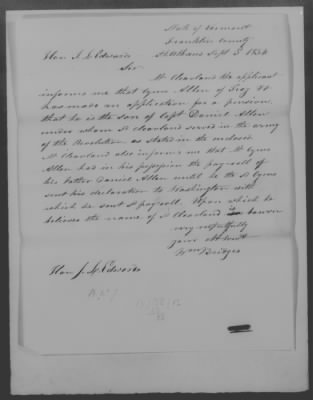 State of Vermont
Franklin County
St Albans Sept 3d 1834
Hon J. L. Edwards
Sir
St Clearland the applicant
informs me that Cyrus Allen of Troy Vt
has made an application for a pension,
that he is the son of Capt Daniel Allen
under whom St Clearland served in the army
of the Revolution as stated in the inclosed
St Clearland also informs me that Mr Cyrus
Allen had in his possession the payroll of
his father Daniel Allen until he the sd Cyrus
sent his declaration to Washington with
which he sent sd payroll. Upon which he
believes the name of St Clearland is borne
very respectfully
your Ob Servt
Wm Bridges
Hon J. L. Edwards